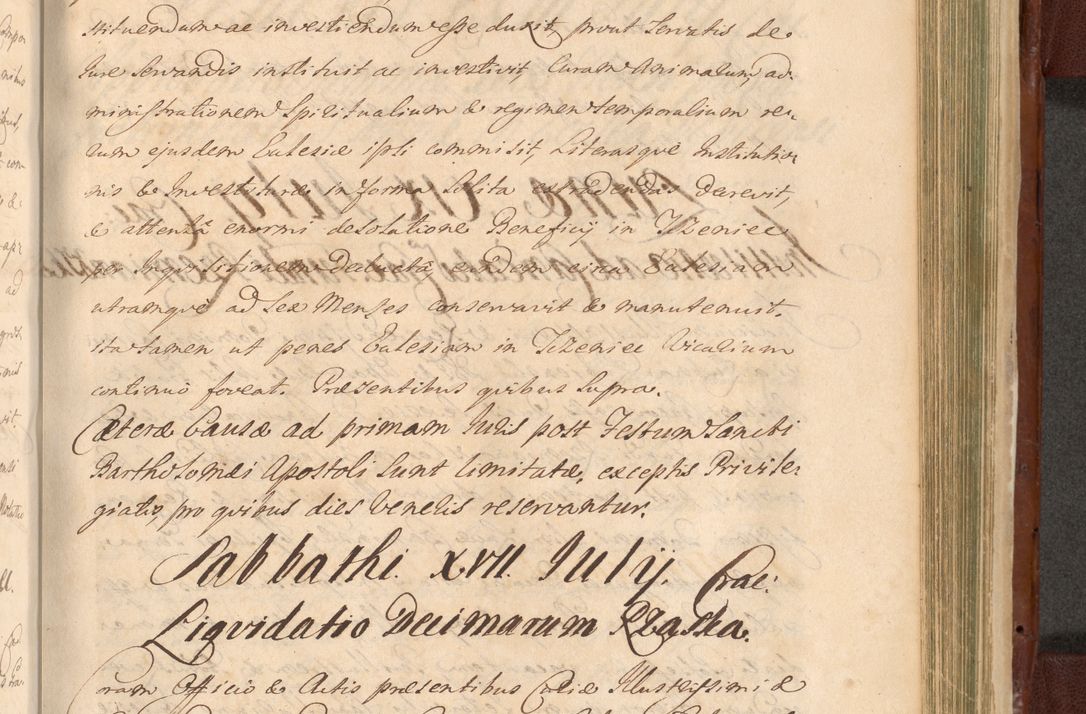 stituendum ac investiendum esse duxit, prout servatis de
Iure servandis instituit ac investivit Curam Animarum, ad
ministrationem Spiritualium & regimen temporalium re
rum ejusdem Ecclesiæ ipsi commisit, Literasque Institutio
nis & Investituræ in forma solita extradendas decrevit,
& attentâ enormi desolatione Beneficij in Tczeniec
per Inquisitionem deductâ, eundem circa Ecclesiam
utramque ad sex Menses conservavit & manutenuit.
ita tamen ut penes Ecclesiam in Tczeniec Vicarium
continuò foveat. Præsentibus quibus supra.
Cæteræ Causæ ad primam Iuris post Festum Sancti
Bartholomæi Apostoli sunt limitatæ, exceptis Privile
giatis, pro quibus dies Veneris reservantur.
Sabbathi. XVII. Iulij. Crac:
Liquidatio Decimarum Rząska.
Coram Officio & Actis præsentibus Curiæ Illustrissimi &